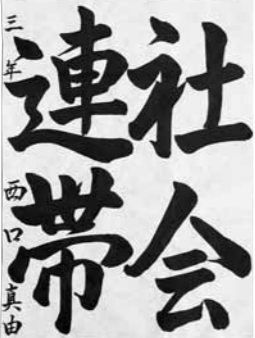 社会
連帯
三年 西口真由